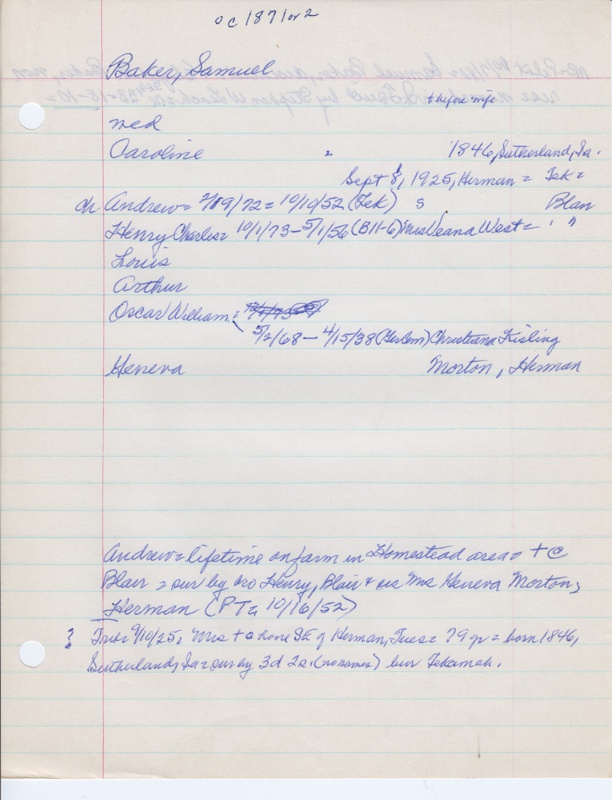 oc 1871 or 2
Baker, Samuel
+ before wife
ned
Caroline = 1846, Sutherland, Ia.
Sept 8, 1925, Herman = Tek =
ch Andrew = 2/19/72 = 10/10/52 (Tek) S. Blair
Henry Charles = 10/1/73 - 5/1/56 (B11-6) Miss Veana West = " "
Louis
Arthur
Oscar William =
5/2/68 - 4/15/38 (Herlem) Christiana Kisling
Geneva Morton, Herman
Andrew = lifetime on farm in Homestead area = + C
Blair = sur by bro Henry, Blair + sis Mrs Geneva Morton,
Herman (PT = 10/16/52)
? Trib = 9/10/25, Mrs + @ home of Herman, Tues = 79 yr = born 1846,
Sutherland, Ia = sur by 3d 2s. (no names) bur Tekamah.